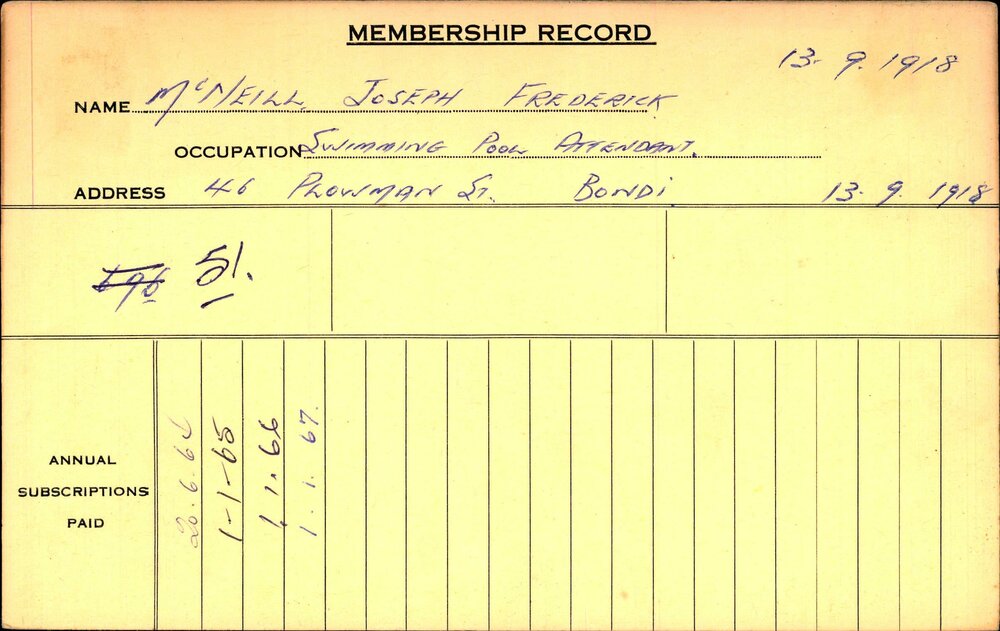 MEMBERSHIP RECORD
13. 9. 1918
NAME McNEILL, JOSEPH FREDERICK
OCCUPATION SWIMMING POOL ATTENDANT.
ADDRESS 46 PLOWMAN ST. BONDI. 13. 9. 1918
696 51.
ANNUAL
SUBSCRIPTIONS
PAID
20.6.64
1-1-65
1.1.66
1.1.67.